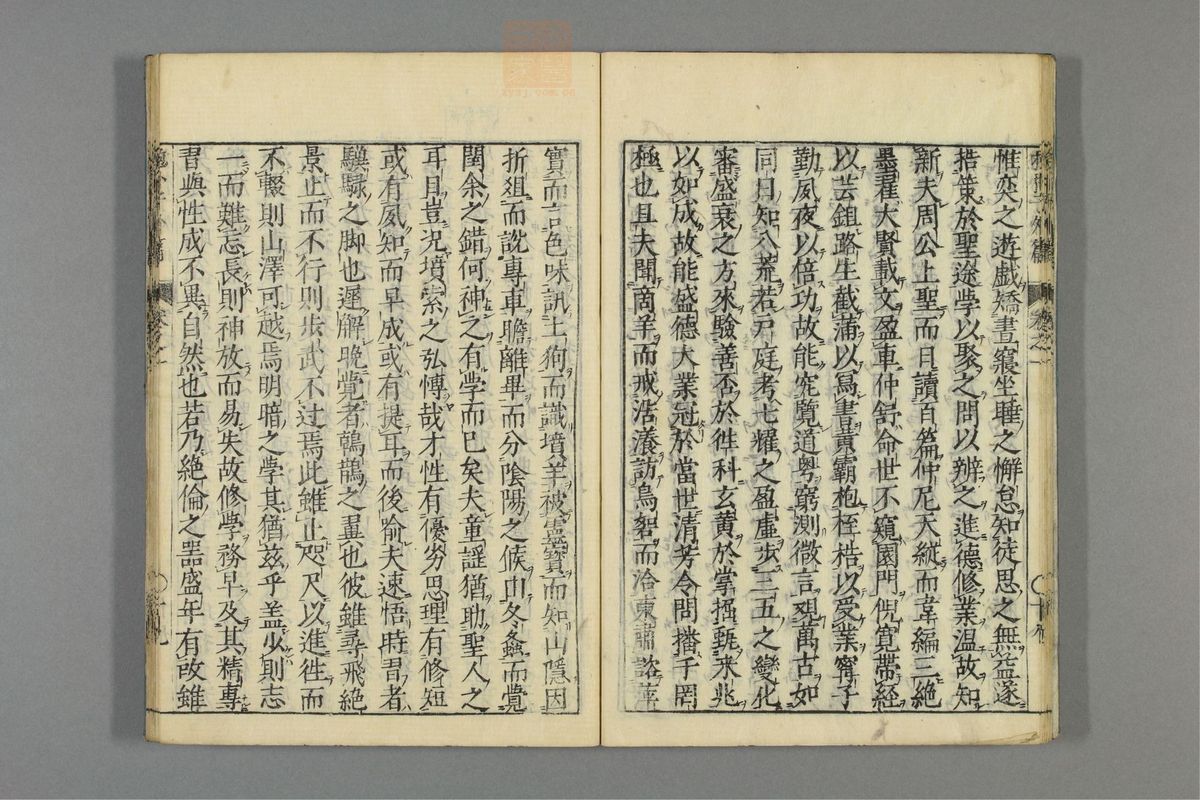 惟奕之遊戲矯晝寢坐睡之懈怠知徒思之無益遂
振策於聖途學以聚之問以辨之進德修業温故知
新夫周公上聖而日讀百篇仲尼天縱而韋編三絶
墨翟大賢載文盈車仲舒命世不窺園門倪寛帶經
以芸鉏路生截蒲以寫書黄霸抱桎梏以受業甯子
勤夙夜以倍功故能究覽道奥窮測微言觀萬古如
同日知八荒若戸庭考七耀之盈虚步三五之變化
審盛衰之方來驗善否於徃料玄黄於掌握甄未兆
以如成故能盛德大業冠於當世清芳令問播千罔
極也且夫聞商羊而戒浩瀁訪鳥砮而洽東肅諮萍
實而言色味訊土狗而識墳羊披靈寶而知山隱因
折俎而說專車瞻離畢而分陰陽之候由冬螽而覺
閏余之錯何神之有学而已矣夫童謡猶助聖人之
耳目豈况墳索之弘愽哉才性有優劣思理有修短
或有夙知而早成或有提耳而後喻夫速悟時習者
驥騄之脚也遲解晩覺者鶉鵲之翼也彼雖尋飛絶
景止而不行則步武不过焉此雖止咫尺以進徃而
不輟則山澤可越焉明暗之学其猶兹乎盖少則志
一而難忘長則神放而易失故修學務早及其精專
習與性成不異自然也若乃絶倫之噐盛年有故雖
卷之一
卷之一
十九